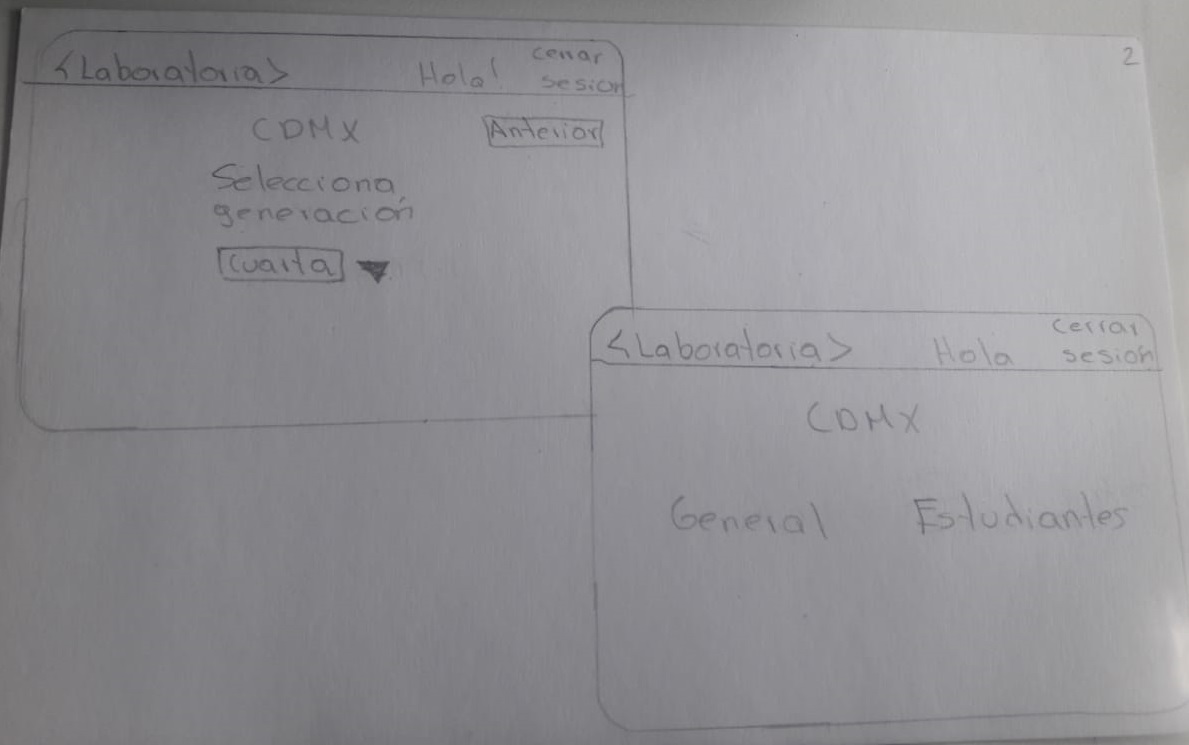 2
<Laboratoria> Hola! cerrar
sesion
CDMX Anterior
Selecciona
generación
Cuarta
<Laboratoria> Hola cerrar
sesión
CDMX
General Estudiantes